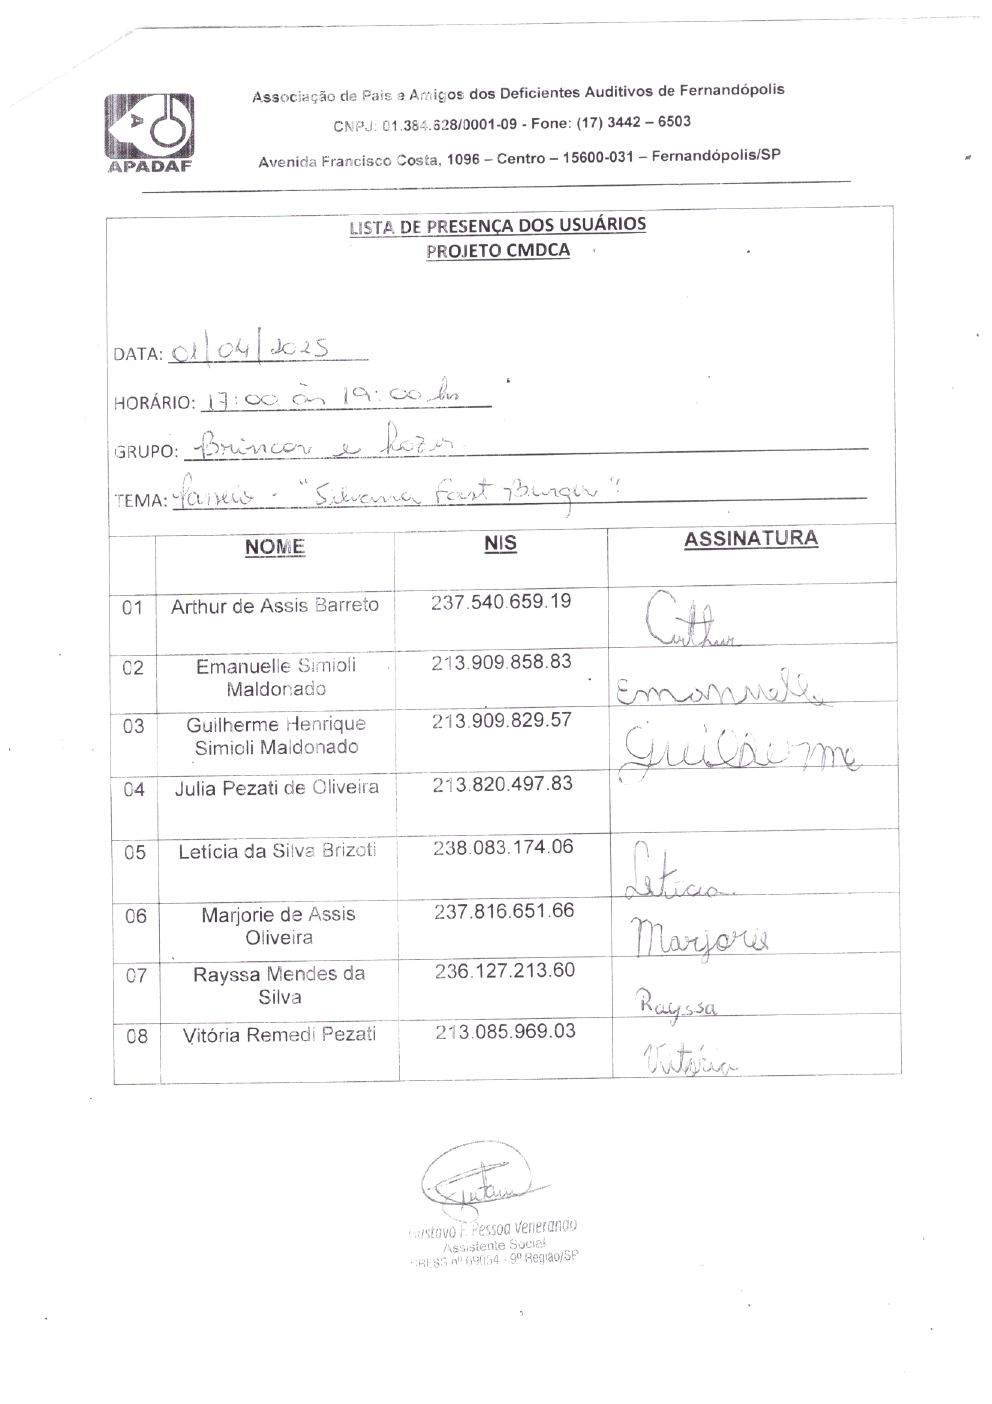 Associação de Pais e Amigos dos Deficientes Auditivos de Fernandópolis
CNPJ: 01.384.628/0001-09 - Fone: (17) 3442 – 6503
Avenida Francisco Costa, 1096 – Centro – 15600-031 – Fernandópolis/SP
APADAF
LISTA DE PRESENÇA DOS USUÁRIOS
PROJETO CMDCA
DATA: 01/04/2025
HORÁRIO: 17:00 às 19:00 hs
GRUPO: Brincar e Lazer.
TEMA: Passeio - "Silvana Fast Burger".
NOME NIS ASSINATURA
01 Arthur de Assis Barreto 237.540.659.19 Arthur
02 Emanuelle Simioli 213.909.858.83
Maldonado Emanuelle
03 Guilherme Henrique 213.909.829.57
Simioli Maldonado Guilherme
04 Julia Pezati de Oliveira 213.820.497.83
05 Letícia da Silva Brizoti 238.083.174.06 Letícia
06 Marjorie de Assis 237.816.651.66
Oliveira Marjorie
07 Rayssa Mendes da 236.127.213.60
Silva Rayssa
08 Vitória Remedi Pezati 213.085.969.03 Vitória
Gustavo F. Pessoa Venerando
Assistente Social
CRESS nº 69054 - 9º Região/SP